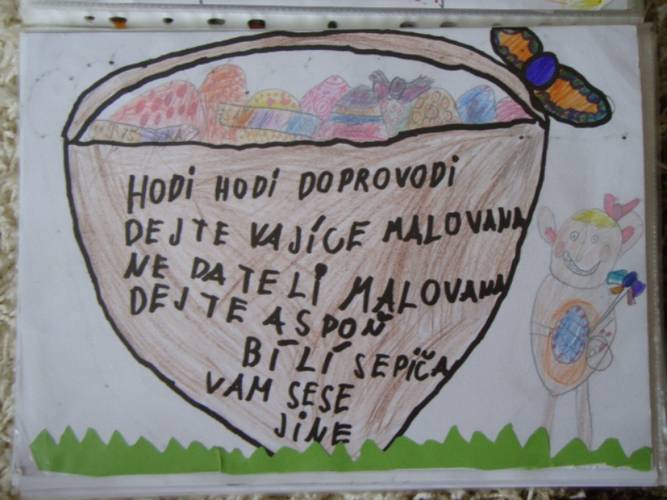 HODI HODI DOPROVODI
DEJTE VAJÍCE MALOVANA
NE DATELI MALOVANA
DEJTE ASPOŇ
BÍLÍ SEPIČA
VAM SESE
JINE